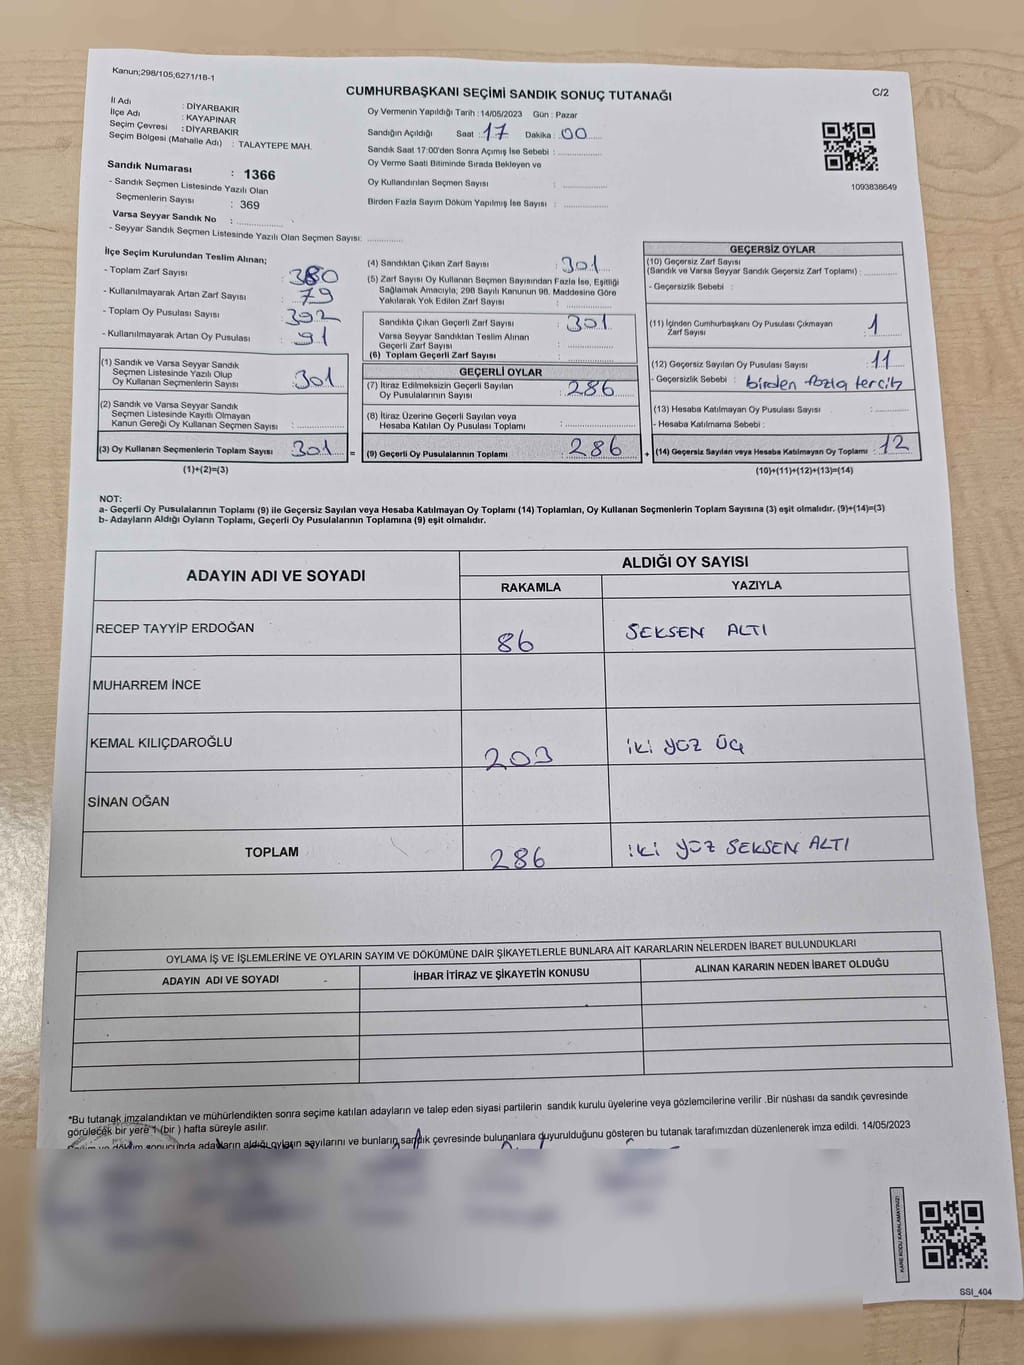 Kanun;298/105;6271/18-1
CUMHURBAŞKANI SEÇİMİ SANDIK SONUÇ TUTANAĞI
C/2
İl Adı : DİYARBAKIR
İlçe Adı : KAYAPINAR
Seçim Çevresi : DİYARBAKIR
Seçim Bölgesi (Mahalle Adı) : TALAYTEPE MAH.
Sandık Numarası : 1366
- Sandık Seçmen Listesinde Yazılı Olan
Seçmenlerin Sayısı : 369
Varsa Seyyar Sandık No :
- Seyyar Sandık Seçmen Listesinde Yazılı Olan Seçmen Sayısı:
Oy Vermenin Yapıldığı Tarih : 14/05/2023 Gün : Pazar
Sandığın Açıldığı Saat : 17 Dakika : 00
Sandık Saat 17:00'den Sonra Açımış İse Sebebi :
Oy Verme Saati Bitiminde Sırada Bekleyen ve
Oy Kullandırılan Seçmen Sayısı :
Birden Fazla Sayım Döküm Yapılmış İse Sayısı :
1093838649
İlçe Seçim Kurulundan Teslim Alınan;
- Toplam Zarf Sayısı : 380
- Kullanılmayarak Artan Zarf Sayısı : 79
- Toplam Oy Pusulası Sayısı : 392
- Kullanılmayarak Artan Oy Pusulası : 91
(1) Sandık ve Varsa Seyyar Sandık
Seçmen Listesinde Yazılı Olup
Oy Kullanan Seçmenlerin Sayısı : 301
(2) Sandık ve Varsa Seyyar Sandık
Seçmen Listesinde Kayıtlı Olmayan
Kanun Gereği Oy Kullanan Seçmen Sayısı :
(3) Oy Kullanan Seçmenlerin Toplam Sayısı : 301 =
(1)+(2)=(3)
(4) Sandıktan Çıkan Zarf Sayısı : 301
(5) Zarf Sayısı Oy Kullanan Seçmen Sayısından Fazla İse, Eşitliği
Sağlamak Amacıyla, 298 Sayılı Kanunun 98. Maddesine Göre
Yakılarak Yok Edilen Zarf Sayısı :
Sandıkta Çıkan Geçerli Zarf Sayısı : 301
Varsa Seyyar Sandıktan Teslim Alınan
Geçerli Zarf Sayısı :
(6) Toplam Geçerli Zarf Sayısı :
GEÇERLİ OYLAR
(7) İtiraz Edilmeksizin Geçerli Sayılan
Oy Pusulalarının Sayısı : 286
(8) İtiraz Üzerine Geçerli Sayılan veya
Hesaba Katılan Oy Pusulası Toplamı :
(9) Geçerli Oy Pusulalarının Toplamı : 286 +
GEÇERSİZ OYLAR
(10) Geçersiz Zarf Sayısı
(Sandık ve Varsa Seyyar Sandık Geçersiz Zarf Toplamı) :
- Geçersizlik Sebebi :
(11) İçinden Cumhurbaşkanı Oy Pusulası Çıkmayan
Zarf Sayısı : 1
(12) Geçersiz Sayılan Oy Pusulası Sayısı : 11
- Geçersizlik Sebebi : birden fazla tercih
(13) Hesaba Katılmayan Oy Pusulası Sayısı :
- Hesaba Katılmama Sebebi :
(14) Geçersiz Sayılan veya Hesaba Katılmayan Oy Toplamı : 12
(10)+(11)+(12)+(13)=(14)
NOT:
a- Geçerli Oy Pusulalarının Toplamı (9) ile Geçersiz Sayılan veya Hesaba Katılmayan Oy Toplamı (14) Toplamları, Oy Kullanan Seçmenlerin Toplam Sayısına (3) eşit olmalıdır. (9)+(14)=(3)
b- Adayların Aldığı Oyların Toplamı, Geçerli Oy Pusulalarının Toplamına (9) eşit olmalıdır.
ADAYIN ADI VE SOYADI
ALDIĞI OY SAYISI
RAKAMLA YAZIYLA
RECEP TAYYİP ERDOĞAN 86 SEKSEN ALTI
MUHARREM İNCE
KEMAL KILIÇDAROĞLU 203 iki yüz üç
SİNAN OĞAN
TOPLAM 286 iki yüz SEKSEN ALTI
OYLAMA İŞ VE İŞLEMLERİNE VE OYLARIN SAYIM VE DÖKÜMÜNE DAİR ŞİKAYETLERLE BUNLARA AİT KARARLARIN NELERDEN İBARET BULUNDUKLARI
ADAYIN ADI VE SOYADI İHBAR İTİRAZ VE ŞİKAYETİN KONUSU ALINAN KARARIN NEDEN İBARET OLDUĞU
*Bu tutanak imzalandıktan ve mühürlendikten sonra seçime katılan adayların ve talep eden siyasi partilerin sandık kurulu üyelerine veya gözlemcilerine verilir .Bir nüshası da sandık çevresinde
görülecek bir yere 1 (bir ) hafta süreyle asılır.
sonucunda adayların aldığı oyların sayılarını ve bunların sandık çevresinde bulunanlara duyurulduğunu gösteren bu tutanak tarafımızdan düzenlenerek imza edildi. 14/05/2023
KARE KODU KARALAMAYINIZ!
SSİ_404